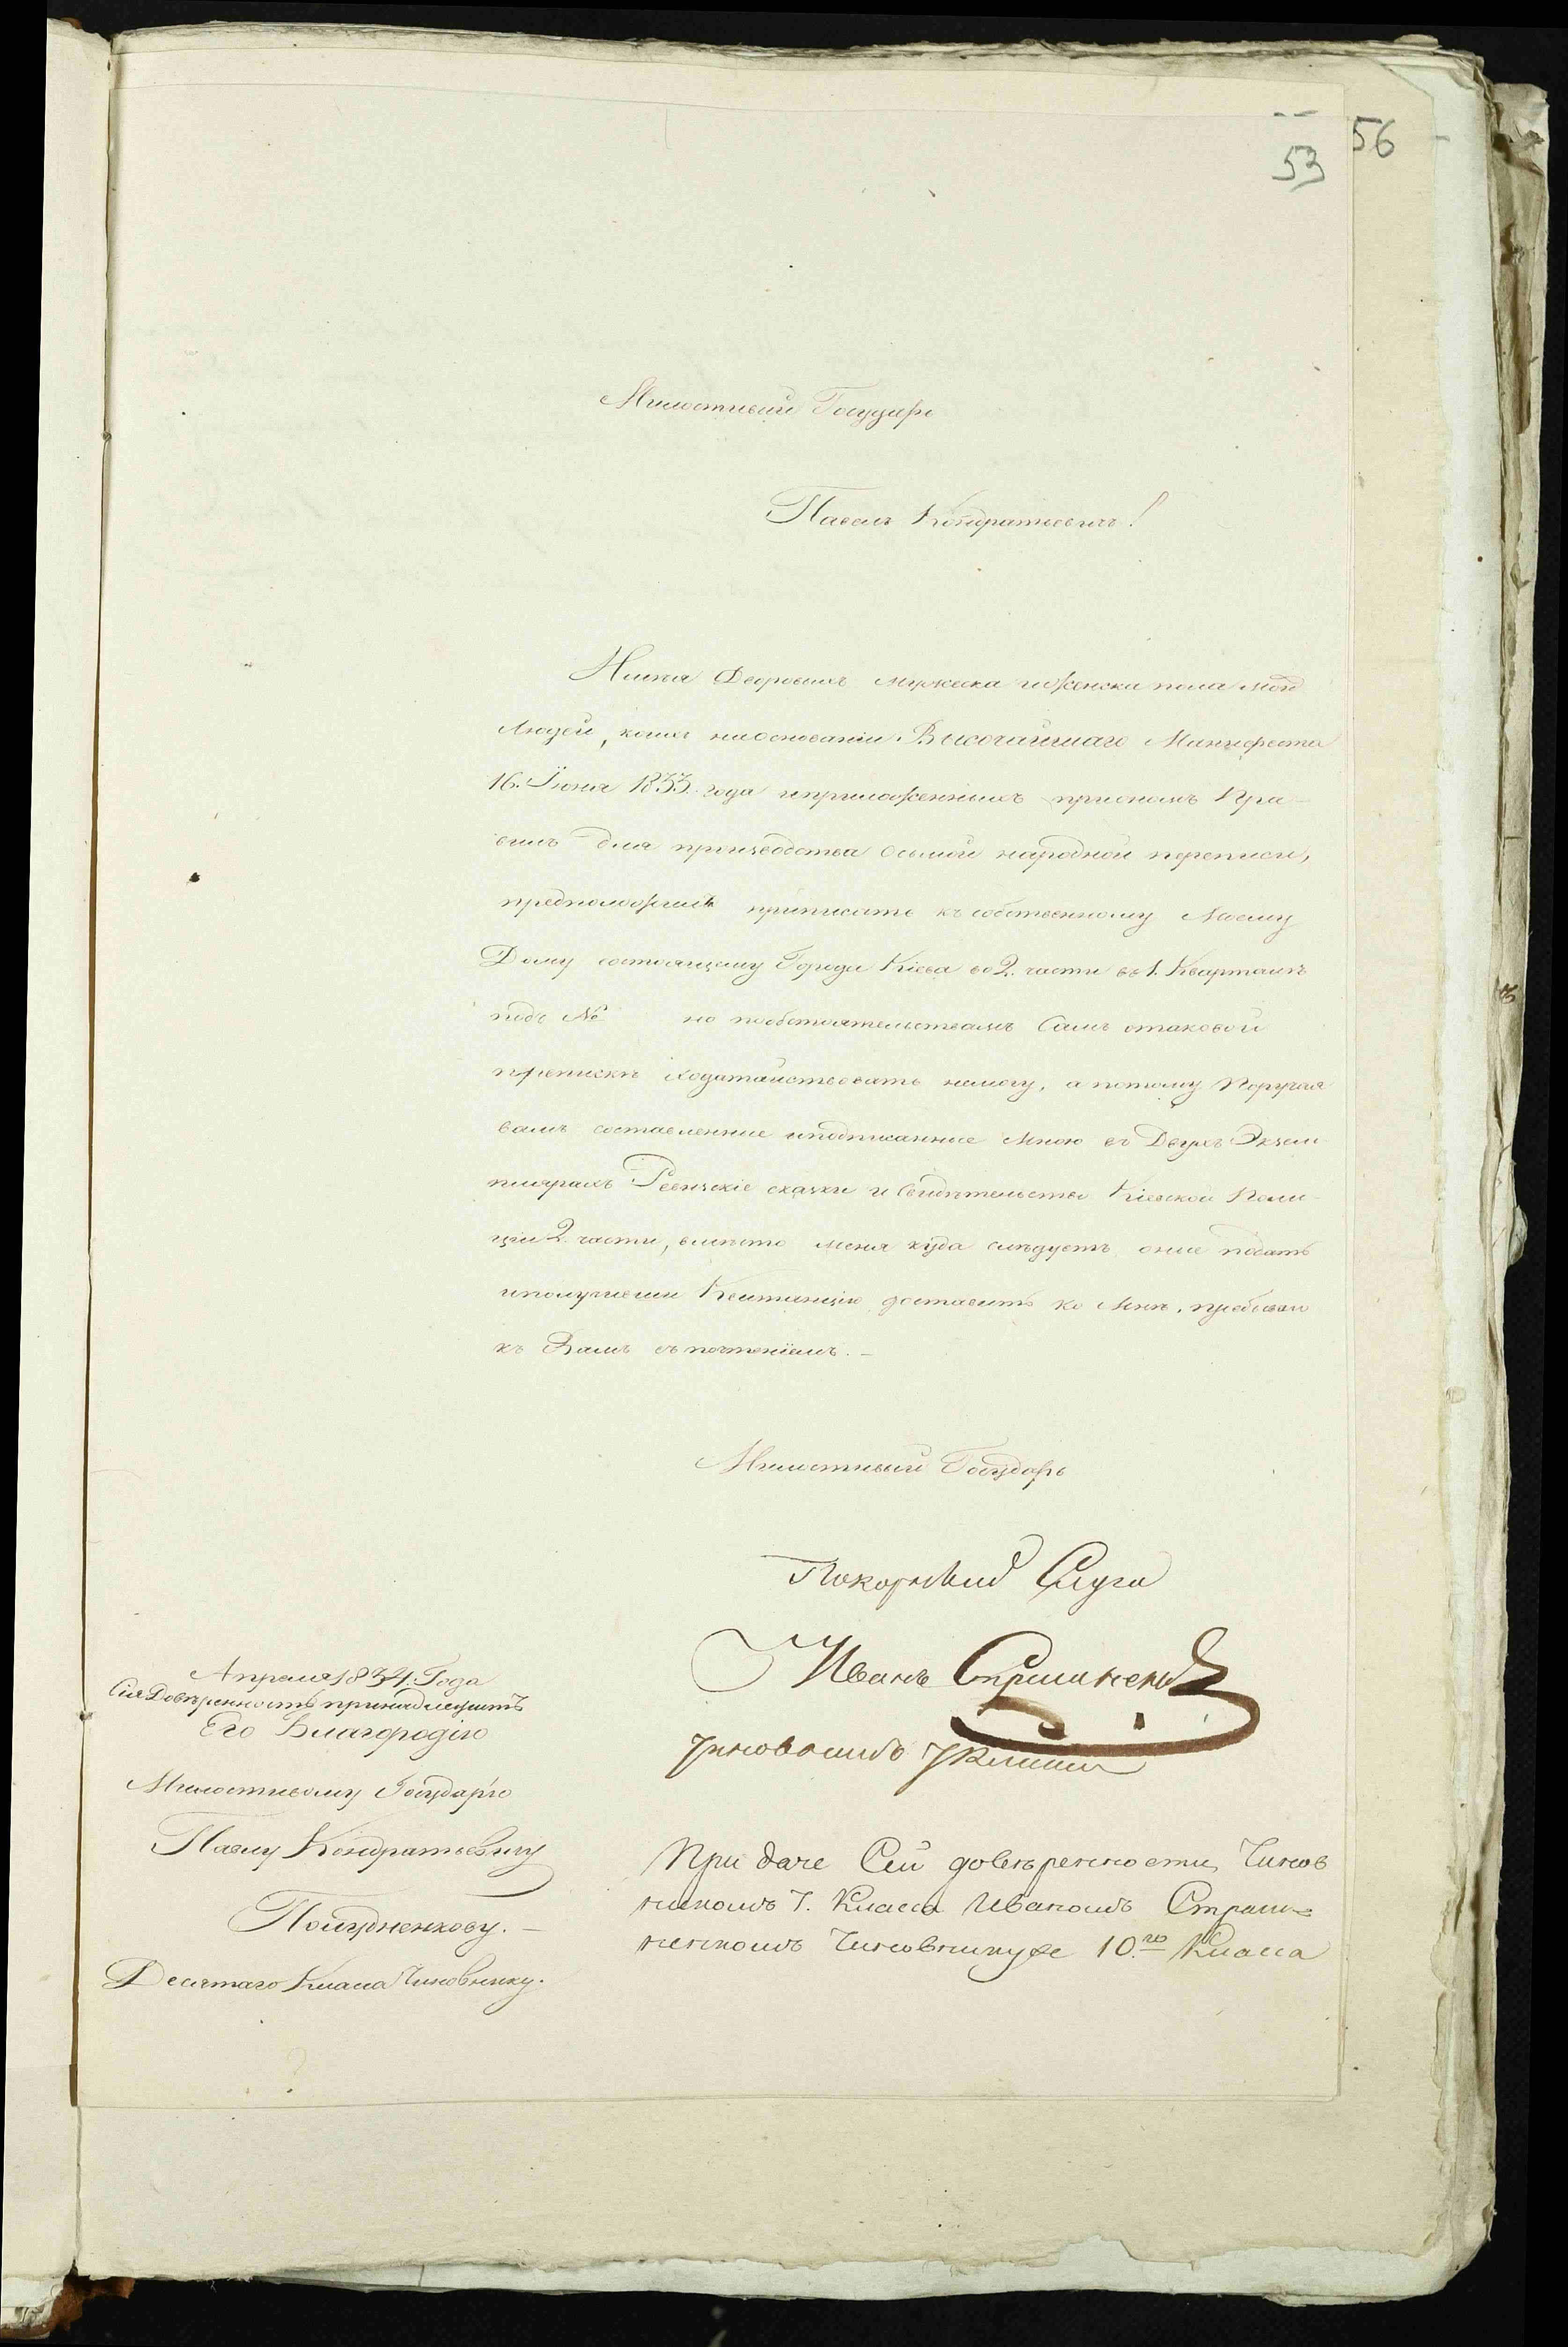 56
53
Милостивый Государь
Павелъ Кондратьевичъ!
Имѣя Дворовыхъ мужеска и женска пола мои
Людей, коихъ на основаніи Высочайшаго Манифеста
16. Іюня 1833. года и приложенныхъ при ономъ Пра-
вилъ для производства осьмой народной переписи,
предположилъ приписать къ собственному Моему
Дому состоящему Города Кіева во 2. части въ 1. Кварталѣ
подъ № но по обстоятельствамъ Самъ о таковой
припискѣ ходатайствовать немогу, а потому Поручая
вамъ составленные и подписанные Мною въ Двухъ Экзем
плярахъ Ревизскіе сказки и Свидѣтельство Кіевской Поли-
ціи 2 части, вмѣсто меня куда слѣдуетъ оные подать
и полученіи Квитанцію доставить ко Мнѣ. пребываю
къ Вамъ съ почтеніемъ. —
Милостивый Государь
Покорный Слуга
Иванъ
Апреля 1834. Года
Сія Довѣренность принадлежитъ
Его Благородію
Милостивому Государю
Павлу Кондратьевичу
Полудненкову. —
Десятаго Класа Чиновнику.
При даче Сей довѣренности, Чинов
никомъ 7. Класса Иваномъ Страш=
ненкомъ Чиновнику же 10.го Класса